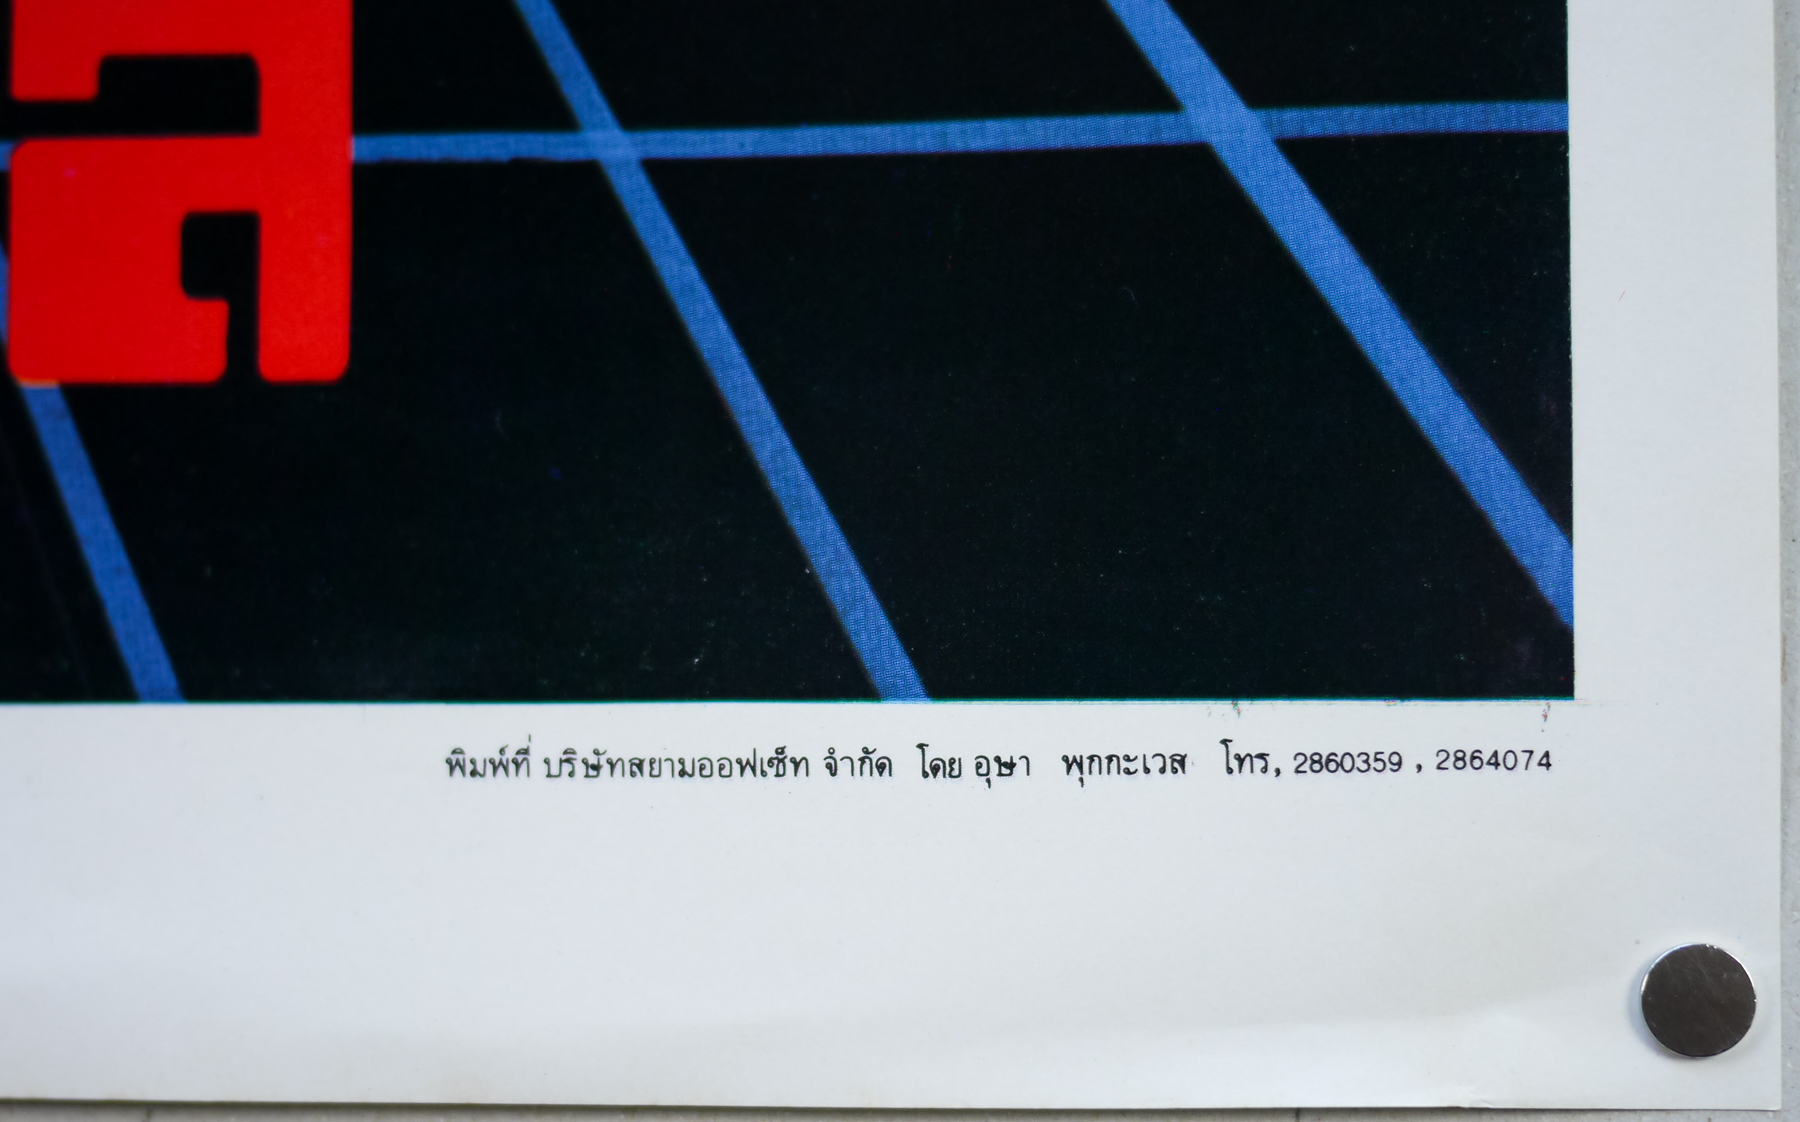 ล
พิมพ์ที่ บริษัทสยามออฟเซ็ท จำกัด โดย อุษา พุกกะเวส โทร, 2860359 , 2864074